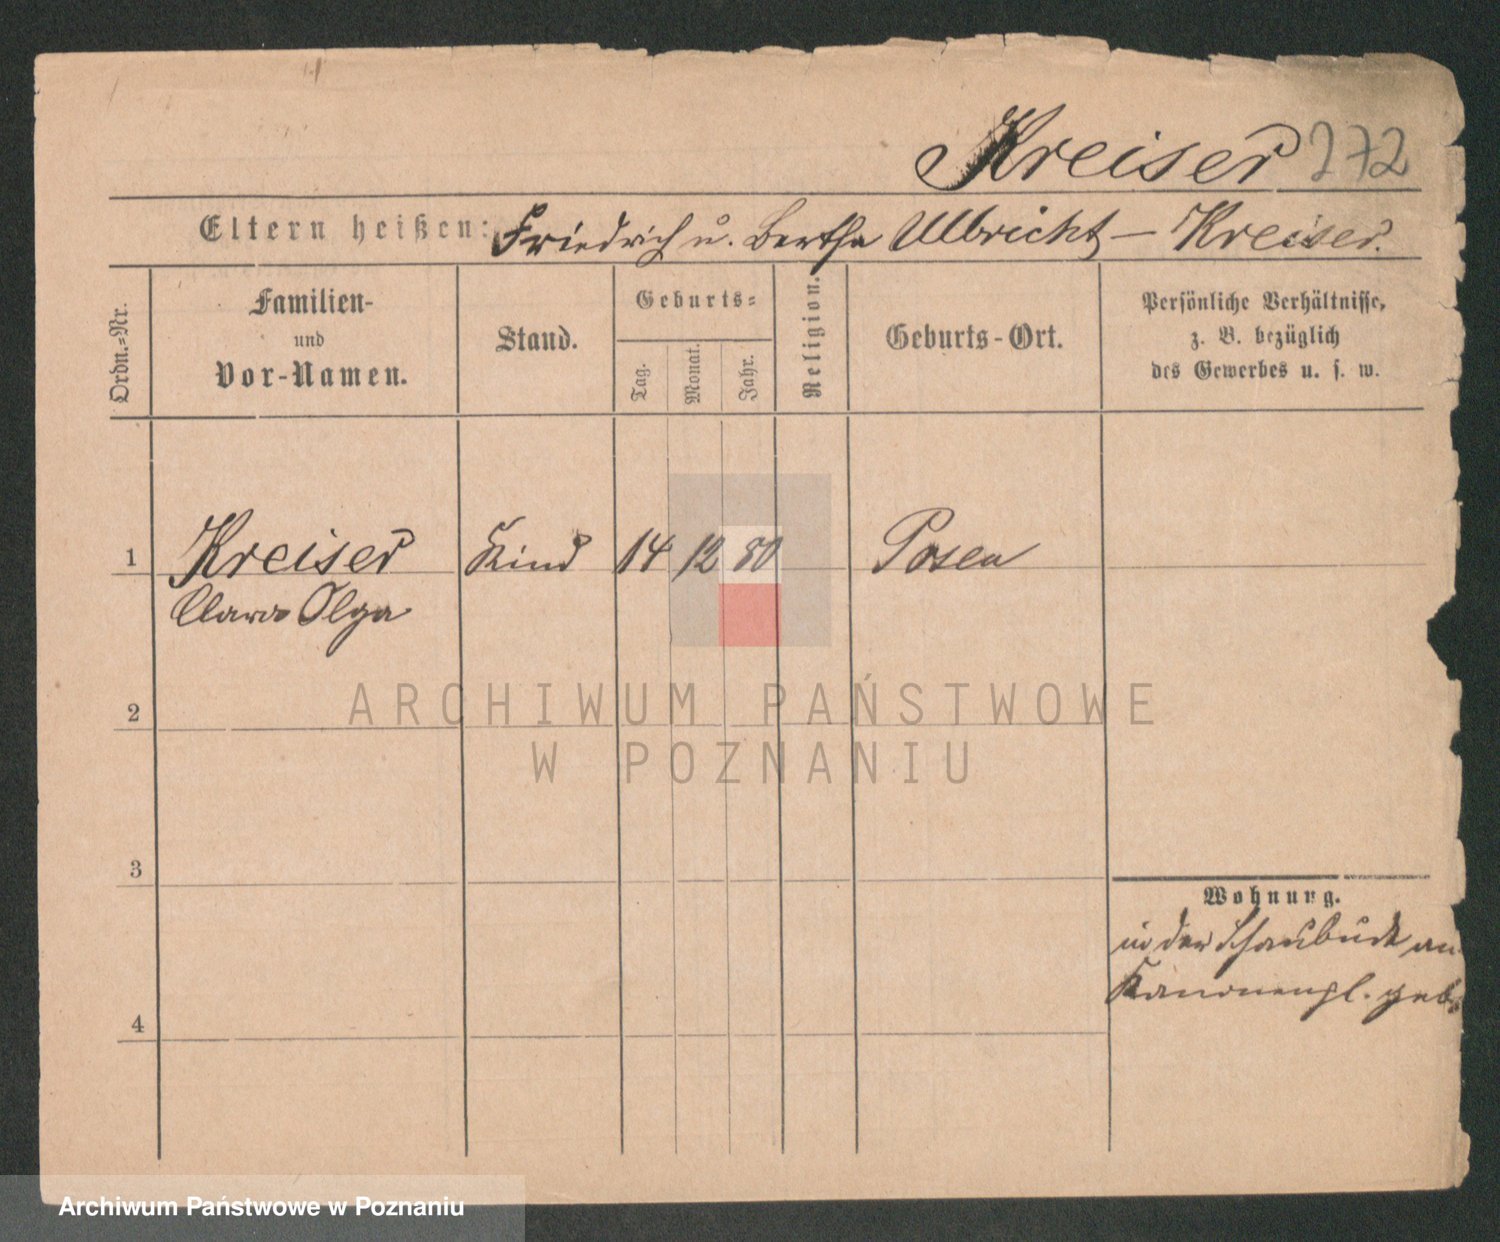 Kreiser 272
Eltern heißen: Friedrich u. Bertha Ulbricht — Kreiser.
Ordn.=Nr.
Familien-
und
Vor-Namen.
Stand.
Geburts=
Tag.
Monat.
Jahr.
Religion.
Geburts-Ort.
Persönliche Verhältnisse,
z. B. bezüglich
des Gewerbes u. s. w.
1 Kreiser Kind 14 12 80 Posen
Clara Olga
2
ARCHIWUM PAŃSTWOWE
W POZNANIU
3
Wohnung.
in der Schaubude am
Kanonenpl. geb.
4
Archiwum Państwowe w Poznaniu